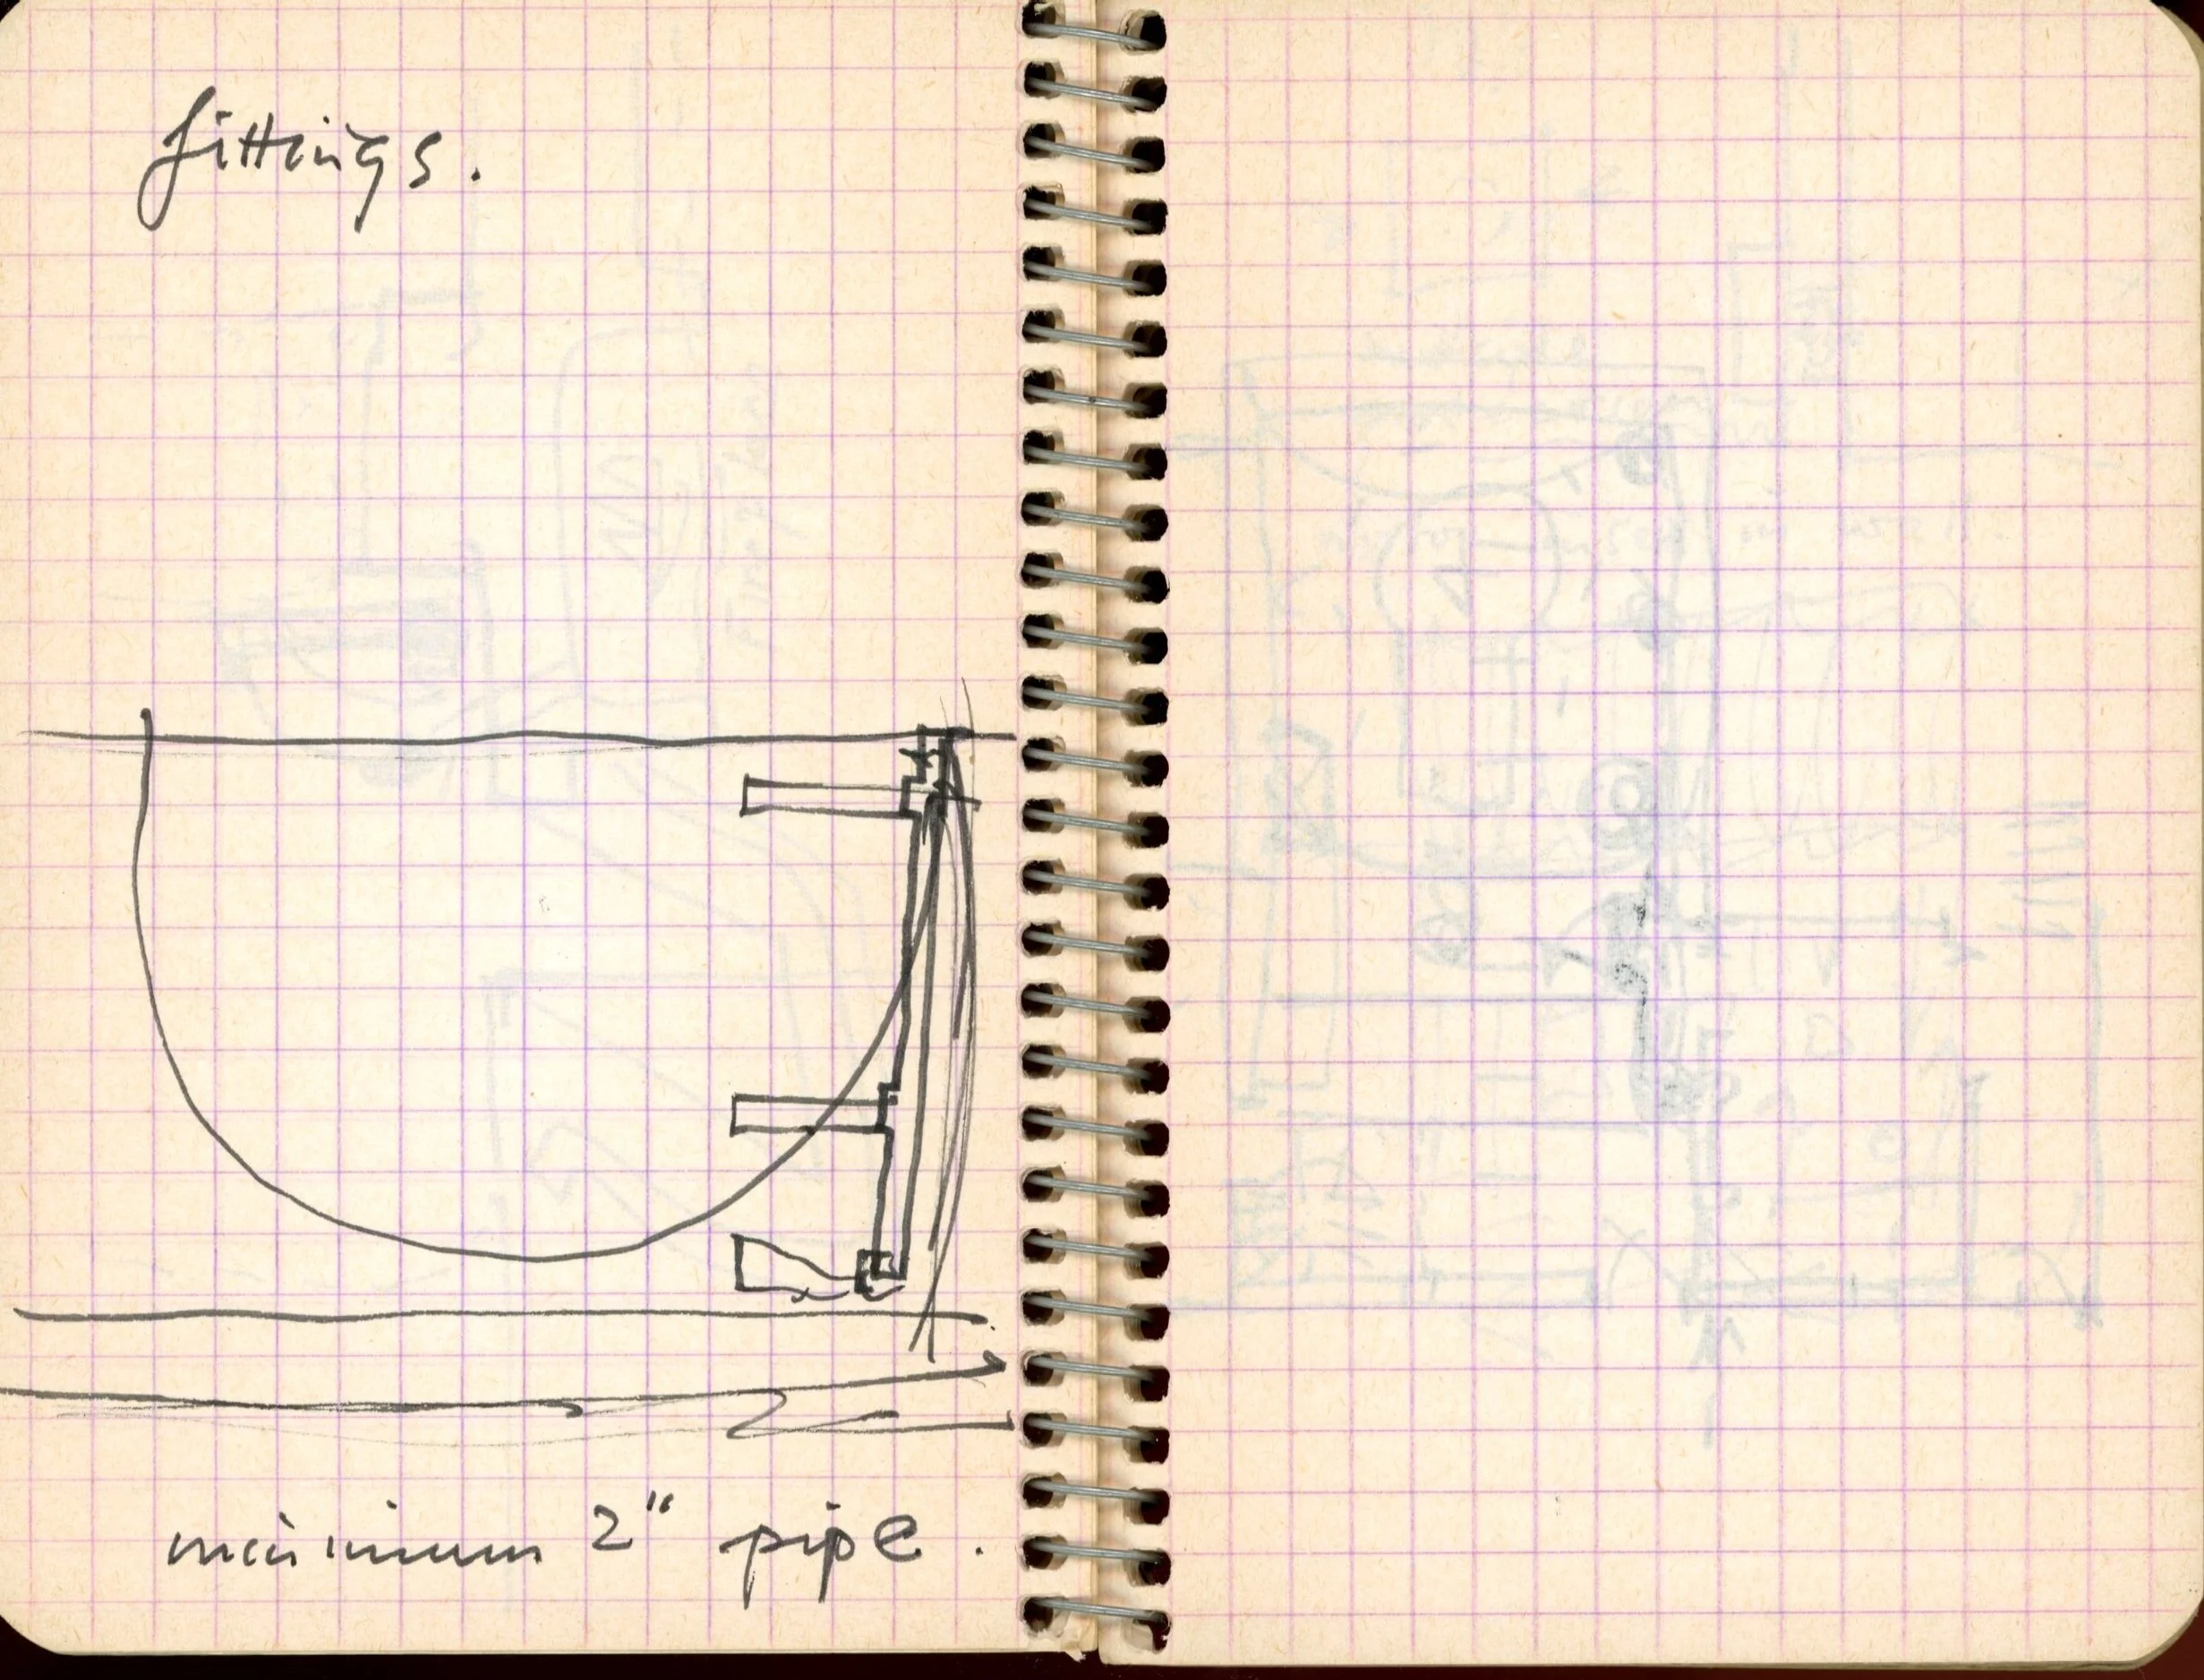 fittings.
minimum 2" pipe.